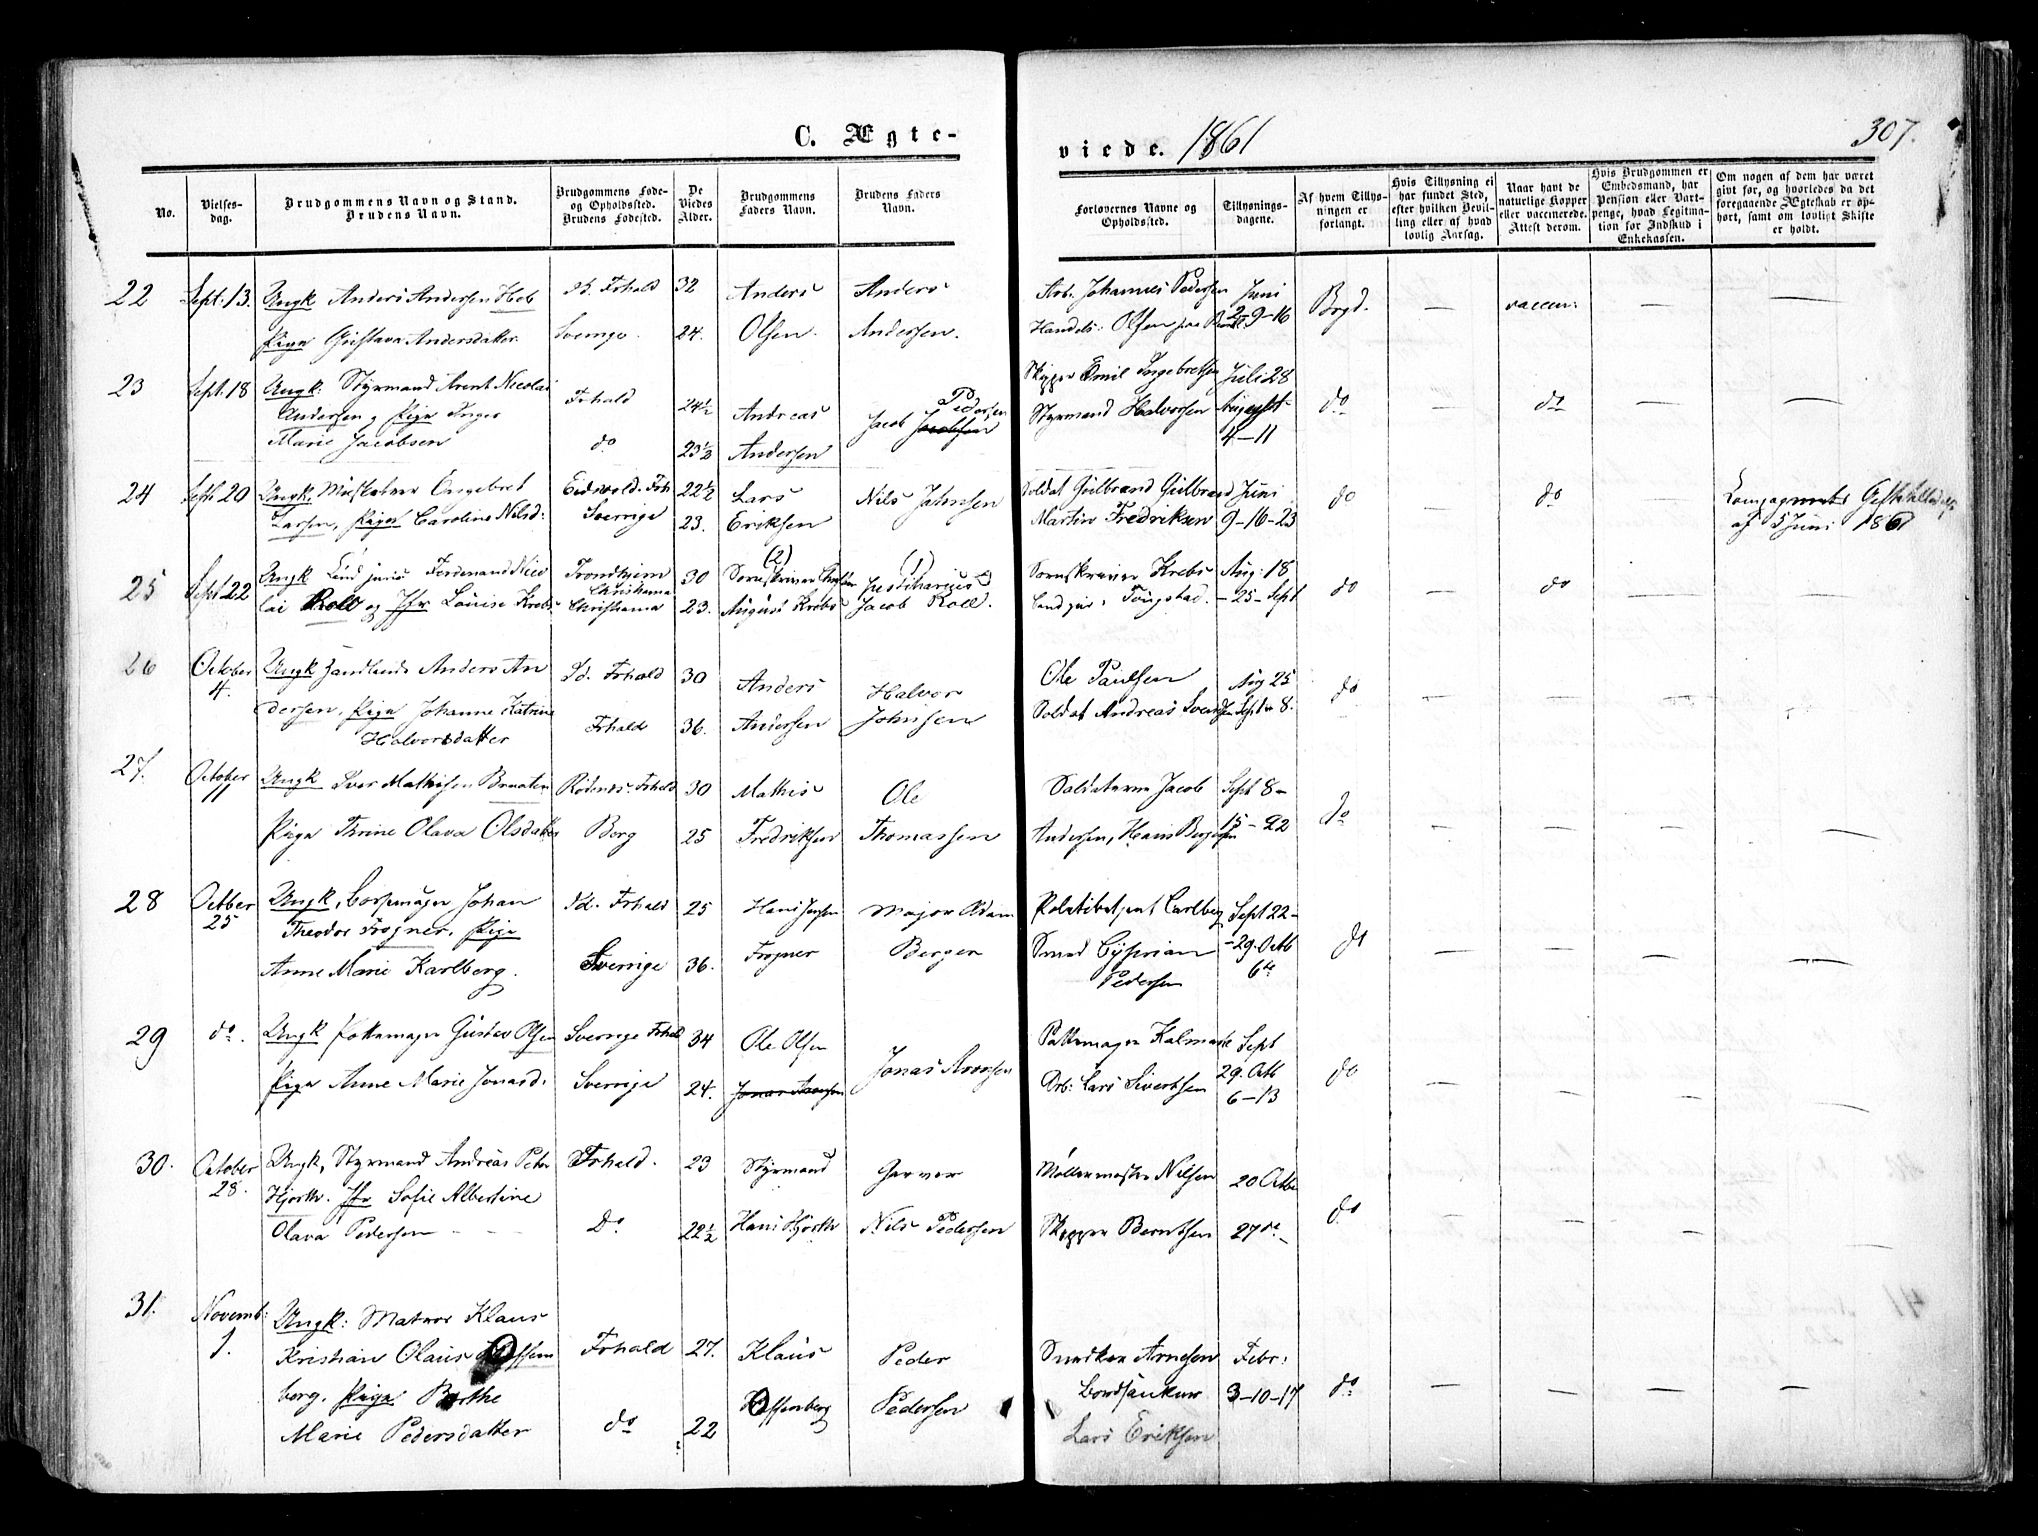 C. Ægte-
viede. 1861
307.
No.
Vielses-
dag.
Brudgommens Navn og Stand.
Brudens Navn.
Brudgommens Føde-
og Opholdssted.
Brudens Fødested.
De
Viedes
Alder.
Brudgommens
Faders Navn.
Brudens Faders
Navn.
Forlovernes Navne og
Opholdssted.
Tillysnings-
dagene.
Af hvem Tillys-
ningen er
forlangt.
Hvis Tillysning ei
har fundet Sted,
efter hvilken Bevil-
ling eller af hvad
lovlig Aarsag.
Naar havt de
naturlige Kopper
eller vaccinerede.
Attest derom.
Hvis Brudgommen er
Embedsmand, har
Pension eller Vart-
penge, hvad Legitima-
tion for Indskud i
Enkekassen.
Om nogen af dem har været
givt før, og hvorledes da det
foregaaende Ægteskab er op-
hørt, samt om lovligt Skifte
er holdt.
22 Sept: 13. Ungk Anders Andersen Fr.hald 32 Anders Anders Arb. Johannes Pedersen Juni
Pige Gustava Andersdatter Sverige 24. Olsen. Andersen. Handels: Olsen 2-9-16 Brgd. — vaccin: — —
23 Sept. 18 Ungk: Styrmand Arent Nicolai Frhald 24½ Andreas Jacob Pedersen Skipper Emil Ingebretsen Juli 28
Andersen og Pige Inger Styrmand Halvorsen August do — do — —
Marie Jacobsen do 23½ Andersen 4-11
24 Sept 20 Ungk. Engebret Eidsvold. Frh 22½ Lars Nils Jahnsen Soldat Gulbrand Gulbrand Juni do — do
Larsen, Pige Caroline Nilsd: Sverige 23. Eriksen Martin Fredriksen 9-16-23 af 5 Juni 1861
25 Sept 22 Ungk Cand juris Ferdinand Nico Trondhjem 30 (2) Sorenskriver (1) Justitiarius Sorenskriver Krebs Aug: 18
Christiania
lai Roll og Jfr Louise Krebs Christiania 23. August Krebs Jacob Roll. Cand jur: - 25 - Sept do — do — —
26 October 4. Ungk Anders An Id. Frhald 30 Anders Halvor Ole Paulsen Aug 25
dersen, Pige Johanne Katrine Frhald 36. Andersen Johnsen Soldat Andreas Svendsen Sept 8. do — — — —
Halvorsdatter
27. October 11 Ungk Iver Mathisen Braaten Rødenes. Frhald 30 Mathis Ole Soldaterne Jacob Sept 8-
Pige Thrine Olava Olsdatter Berg 25 Fredriksen Thomassen Andersen, Hans 15-22 do — — — —
28 Octber 25 Ungk, Johan Id. Frhald 25 Hans Major Adam Politibetjent Carlberg Sept 22-
Theodor Frogner, Pige Sverige 36. Frogner Berger Smed Cyprian -29. Octb do — — — —
Anne Marie Karlberg. Pedersen 6te
29 do. Ungk Pottemager Gustav Olsen Sverige Frhald 34 Ole Olsen Jonas Aronsen Pottemager Sept
Pige Anne Marie Jonasd: Sverige 24. Jonas Aronsen Arb: Lars Sivertsen 29. Octb 6-13 do — — — —
30. October 28. Ungk, Styrmand Andreas Peter Frhald. 23 Styrmand Garver Møllermester Nilsen 20 Octbr
Hjorth. Jfr Sofie Albertine
Olava Pedersen Do 22½ Hans Hjorth Nils Pedersen Skipper Berntsen 27 do - do — — — —
31. Novemb: 1. Ungk: Matros Klaus
Kristian Olaus Offen Frhald 27. Klaus Peder Arnesen Febr:
berg. Pige Berthe Offenberg Pedersen 3-10-17 do — — — —
Marie Pedersdatter do 22 Lars Eriksen